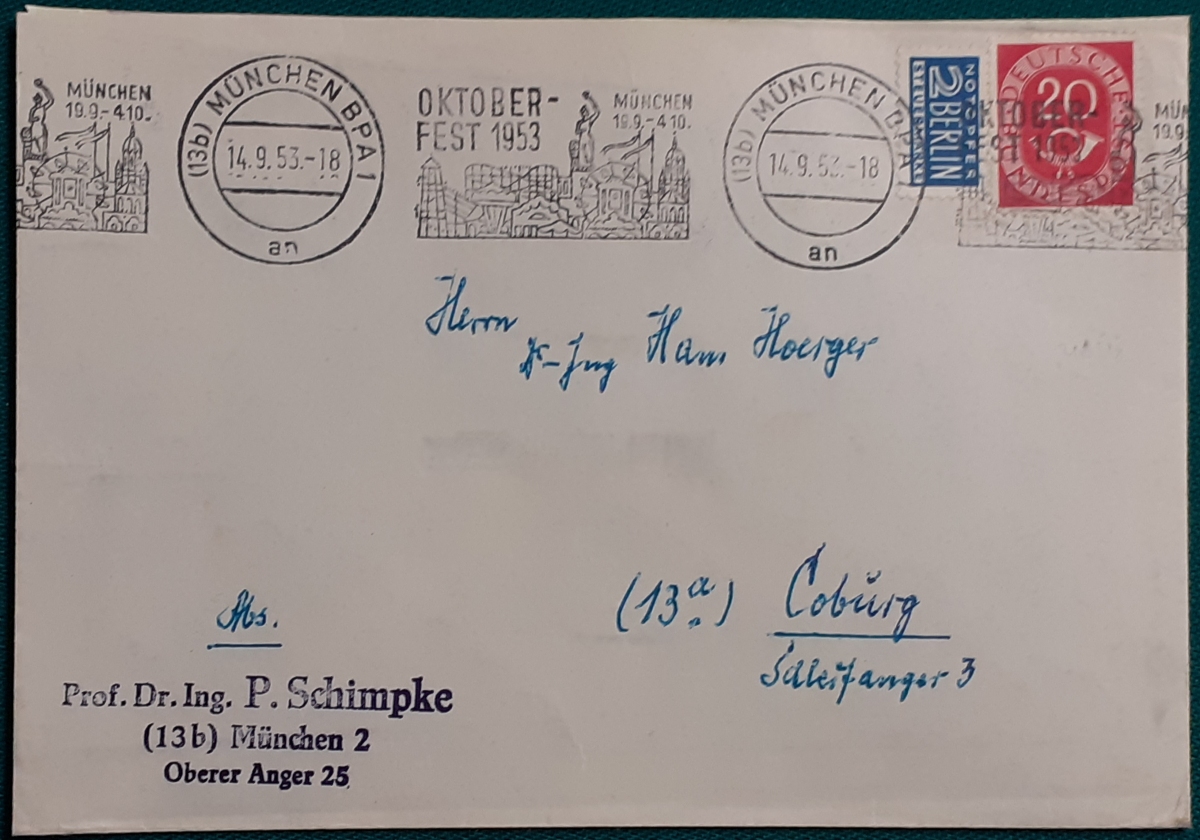 MÜNCHEN
19.9.-4.10.
(13b) MÜNCHEN BPA 1
14.9.53.-18
an
OKTOBER-
FEST 1953
MÜNCHEN
19.9.-4.10.
(13b) MÜNCHEN BPA
14.9.53.-18
an
NOTOPFER
2 BERLIN
STEUERMARKE
DEUTSCHE
20
BUNDESPOST
OKTOBER-
FEST 1953
MÜN
19.9
Herrn
Dr-Ing Hans Hoerger
(13a) Coburg
Schleifanger 3
Abs.
Prof. Dr. Ing. P. Schimpke
(13b) München 2
Oberer Anger 25